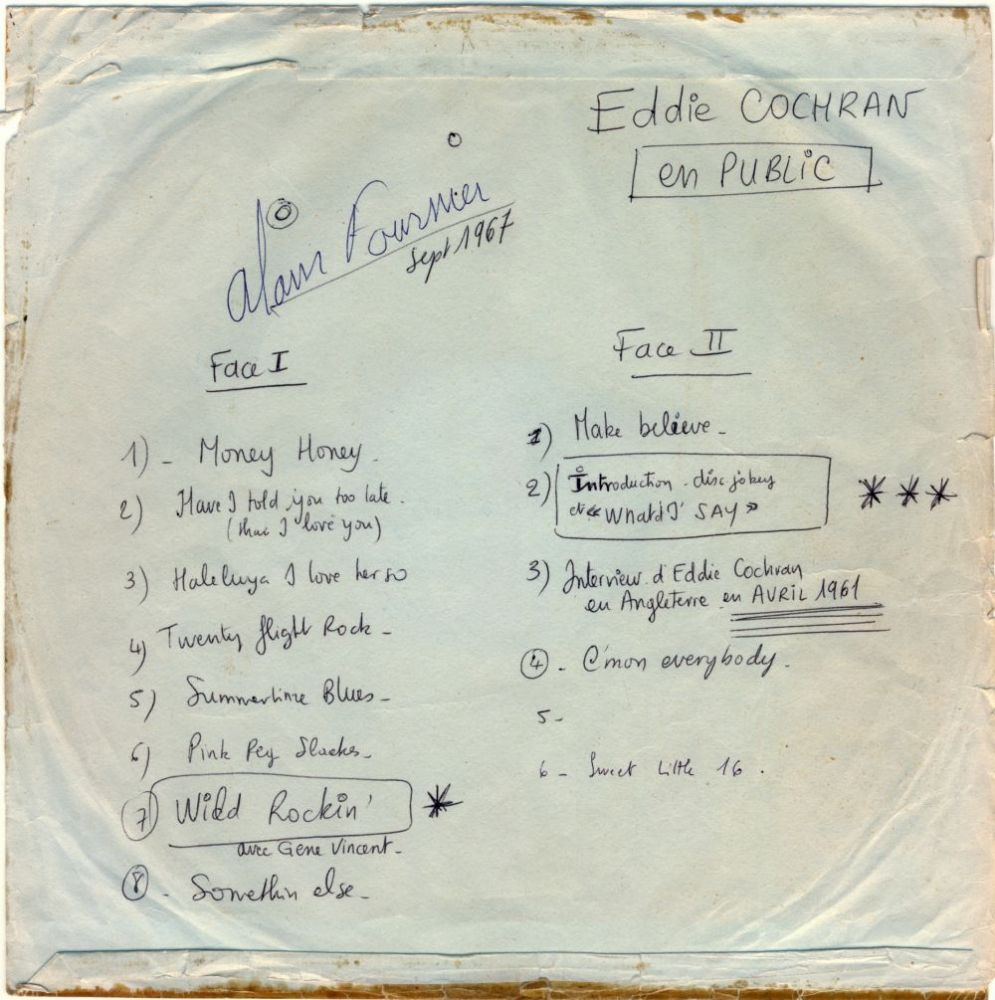 Eddie COCHRAN
en PUBLIC
Alain Fournier
Sept 1967
Face I
1) - Money Honey.
2) Have I told you too late.
(that I love you)
3) Haleluya I love her so
4) Twenty flight Rock -
5) Summertime Blues -
6) Pink Peg Slacks -
7) Wild Rockin'
avec Gene Vincent -
8 - Somethin else -
Face II
1) Make believe -
2) Introduction - disc jokey
et « What'd I' SAY »
3) Interview d'Eddie Cochran
en Angleterre en AVRIL 1961
4 - C'mon everybody.
5 -
6 - Sweet Little 16.